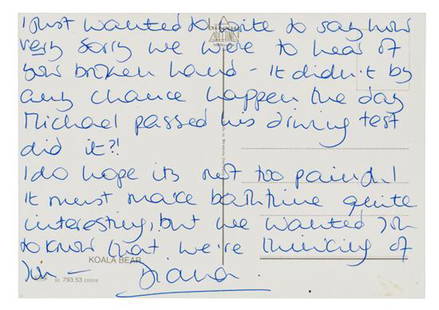 I just wanted to write to say how
very sorry we were to hear of
your broken hand - it didn't by
any chance happen the day
Michael passed his driving test
did it?!
I do hope its not too painful
It must make bathtime quite
interesting, but we wanted you
to know that we're thinking of
you - Diana.
KOALA BEAR
793.53